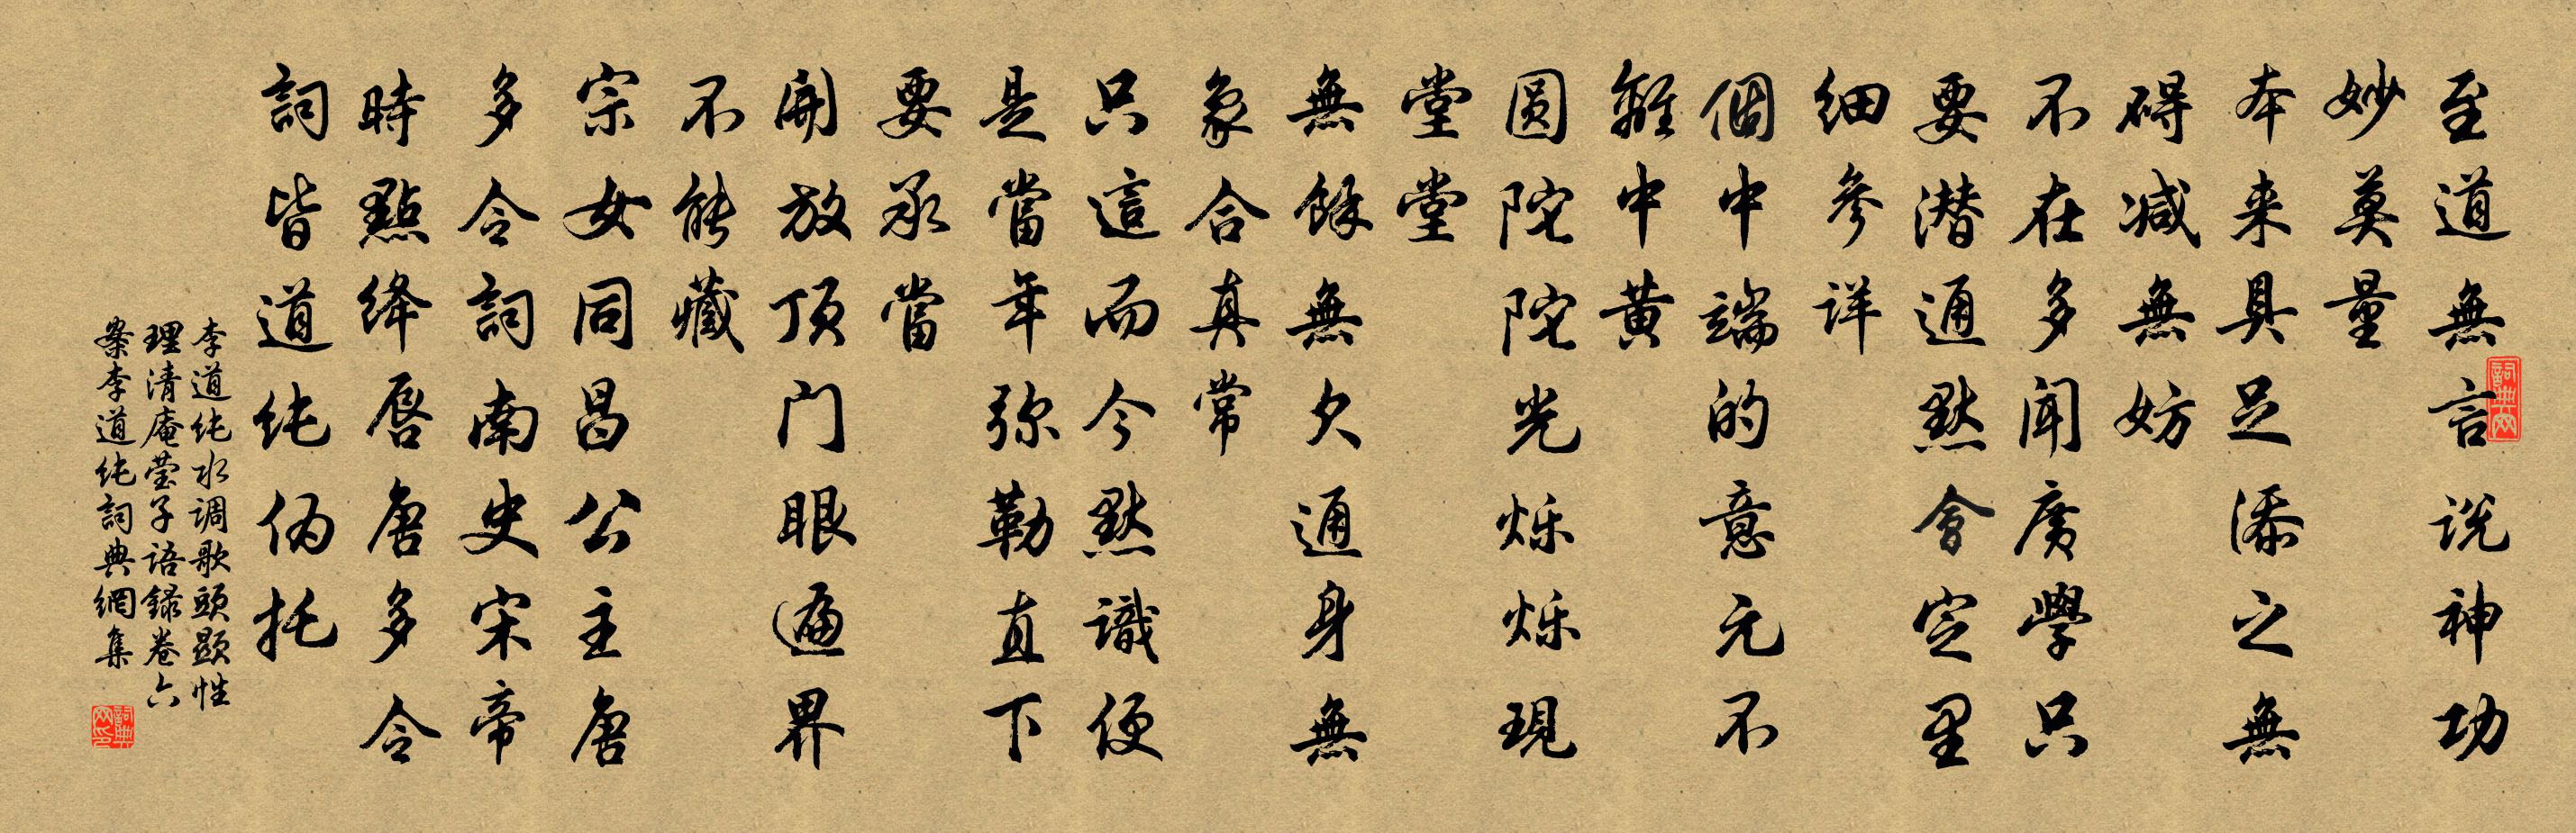 至道無言说神功
妙莫量
本来具足添之無
碍减無妨
不在多闻廣學只
要潜通默會定里
细参详
個中端的意元不
離中黄
圆陀陀光烁烁現
堂堂
無餘無欠通身無
象合真常
只這而今默識便
是當年弥勒直下
要承當
開放顶门眼遍界
不能藏
宗女同昌公主唐
多令詞南史宋帝
時點绛唇唐多令
詞皆道纯伪托
李道纯水调歌頭顕性
理清庵莹子語録卷六
案李道纯詞典網集
詞典网
詞典网印